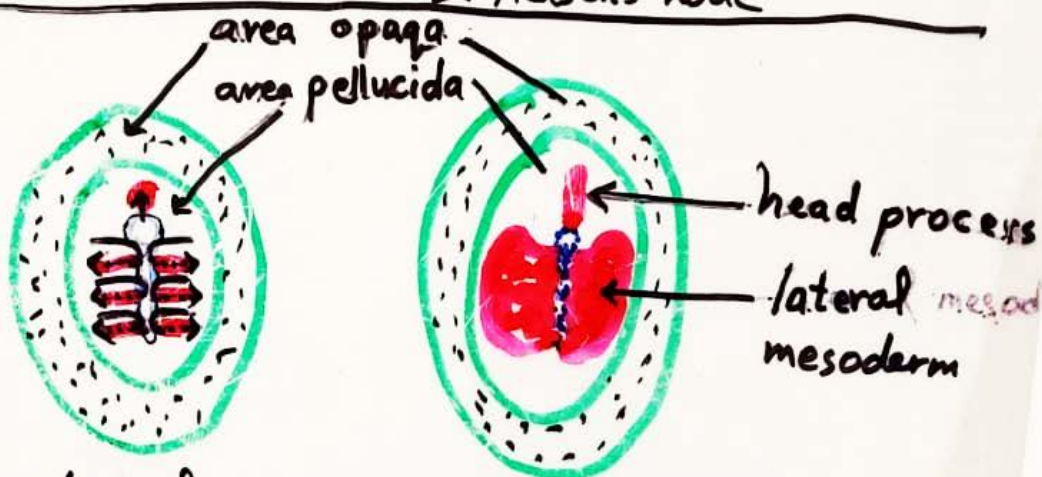 area opaqa
area pellucida
head process
lateral mesod
mesoderm